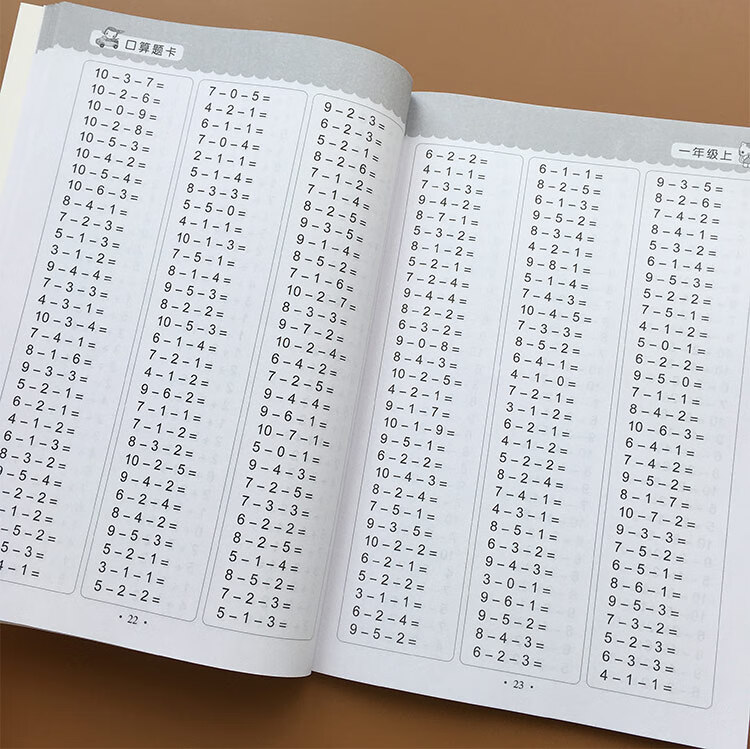 口算题卡
10-3-7=
10-2-6=
10-0-9=
10-2-8=
10-5-3=
10-4-2=
10-5-4=
10-6-3=
8-4-1=
7-2-3=
5-1-3=
3-1-2=
9-4-4=
7-3-3=
4-3-1=
10-3-4=
7-4-1=
8-1-6=
9-3-3=
5-2-1=
6-2-1=
4-1-2=
6-1-3=
8-3-2=
7-0-5=
4-2-1=
6-1-1=
7-0-4=
2-1-1=
5-1-4=
8-3-3=
5-5-0=
4-1-1=
10-1-3=
7-5-1=
8-1-4=
9-5-3=
8-2-2=
10-5-3=
6-1-4=
7-2-1=
4-1-2=
9-6-2=
7-1-1=
7-1-2=
8-3-2=
10-2-5=
9-4-4=
6-2-4=
8-4-2=
9-5-3=
5-2-1=
3-1-1=
5-2-2=
9-2-3=
6-2-3=
5-2-1=
8-2-6=
7-1-2=
7-1-4=
8-2-5=
9-3-5=
9-1-4=
8-5-2=
7-1-6=
10-2-7=
8-3-3=
9-7-2=
10-2-4=
6-4-2=
7-2-5=
9-4-4=
9-6-1=
10-7-1=
5-0-1=
9-4-3=
8-2-5=
7-3-3=
6-2-2=
8-2-5=
5-1-4=
8-5-2=
7-2-3=
5-1-3=
22
一年级上
6-2-2=
4-1-1=
7-3-3=
9-4-2=
8-7-1=
5-3-2=
8-1-2=
5-2-1=
7-2-4=
9-4-4=
8-2-2=
6-3-2=
9-0-8=
8-4-3=
10-2-5=
4-2-1=
9-1-7=
10-1-9=
9-5-1=
6-2-2=
10-4-3=
8-2-4=
7-5-1=
9-3-5=
10-2-2=
6-2-1=
5-2-2=
3-1-1=
6-2-4=
9-5-2=
6-1-1=
8-2-5=
6-1-3=
9-5-2=
8-3-4=
4-2-1=
9-8-1=
10-5-4=
7-4-2=
10-4-5=
7-3-3=
8-5-2=
6-4-1=
4-1-0=
7-2-1=
3-1-2=
6-2-1=
4-1-2=
5-2-2=
7-4-1=
9-3-4=
4-3-1=
8-5-1=
6-3-2=
9-4-3=
3-0-1=
9-6-1=
9-5-2=
8-4-3=
6-2-3=
9-3-5=
8-2-6=
7-4-2=
8-4-1=
5-3-1=
6-1-4=
9-5-3=
5-2-2=
7-5-1=
4-1-2=
6-5-1=
5-2-2=
9-5-0=
7-2-1=
8-4-2=
10-6-3=
9-4-3=
6-2-3=
7-4-2=
8-1-7=
10-7-2=
9-3-3=
7-5-2=
6-5-1=
8-6-1=
7-3-3=
5-2-3=
6-3-3=
4-1-1=
23